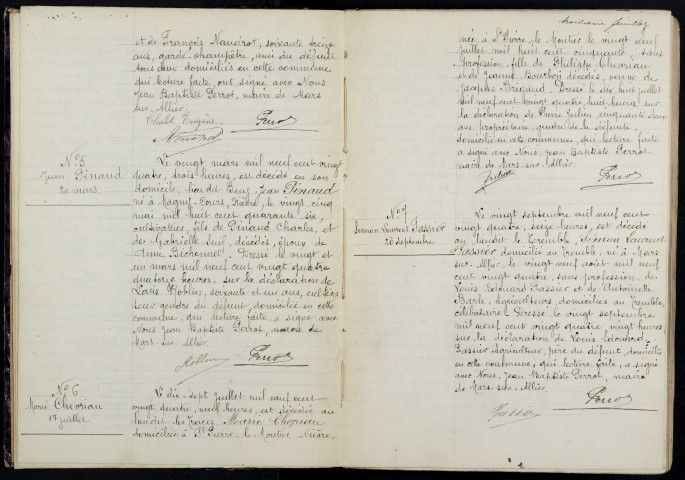 et de François Naudrot, soixante treize
ans, garde-champêtre, ami du défunt
tous deux domiciliés en cette commune
qui lecture faite, ont signé avec Nous
Jean Baptiste Perrot, maire de Mars
sur-Allier.
Chalot Eugène Perrot
N° 5
Jean Pinaud
20 mars.
Le vingt mars mil neuf cent vingt
quatre, trois heures, est décédé en son
domicile, lieu dit Jean Pinaud
né à Magny-Cours, Nièvre, le vingt cinq
mai mil huit cent quarante six,
cultivateur, fils de Pinaud Charles, et
de Gabrielle décédés, époux de
Anne Dressé le vingt et
un mars mil neuf cent vingt quatre
quatorze heures, sur la déclaration de
Louis Moblin, soixante et un ans, cultiva
teur gendre du défunt, domicilié en cette
commune, qui lecture faite a signé avec
Nous Jean Baptiste Perrot, maire de
Mars-sur-Allier.
Moblin Perrot
N° 6
Marie Chevriau
17 juillet
Le dix-sept juillet mil neuf cent
vingt quatre, neuf heures, est décédée au
lieu dit les Places Marie Chevriau
domiciliée à St Pierre-le-Moutier Nièvre,
troisième feuillet
née à St Pierre le Moutier le vingt neuf
juillet mil huit cent cinquante, sans
profession, fille de Philippe Chevriau
et de Jeanne Bourbon décédés, veuve de
Jacques Dressé le dix huit juillet
mil neuf cent vingt quatre, huit heures, sur
la déclaration de Pierre Julien, cinquante
ans, propriétaire, gendre de la défunte,
domicilié en cette commune, qui lecture faite
a signé avec Nous, Jean Baptiste Perrot
maire de Mars-sur-Allier.
Julien Perrot
N° 7
Simon Laurent Tassier
20 septembre
Le vingt septembre mil neuf cent
vingt quatre, seize heures, est décédé
au lieudit le Tremble, Simon Laurent
Tassier domicilié au Tremble, né à Mars
sur-Allier, le vingt neuf août mil neuf
cent vingt quatre, sans profession, de
Louis Edouard Tassier et de Antoinette
Barle, agriculteurs, domiciliés au Tremble,
célibataire. Dressé le vingt septembre
mil neuf cent vingt quatre vingt heures,
sur la déclaration de Louis Edouard
Tassier agriculteur, père du défunt, domicilié
en cette commune, qui lecture faite, a signé
avec Nous, Jean Baptiste Perrot, maire
de Mars-sur-Allier.
Tassier Perrot